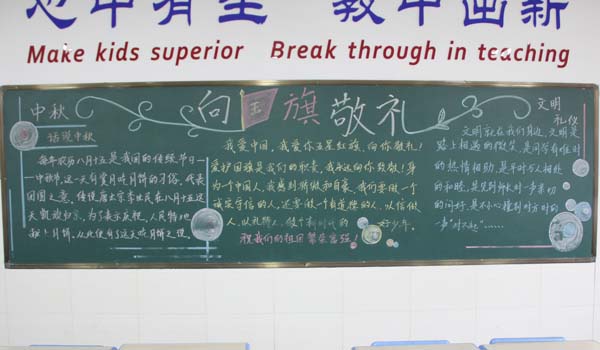 心中有生 教中出新
Make kids superior Break through in teaching
中秋
话说中秋
每年农历八月十五是我国的传统节日—
—中秋节，这一天有赏月吃月饼的习俗，代表
团圆之意，传说唐太宗李世民在八月十五这
月饼，从此便有了这天吃月饼之说。
向国旗敬礼
我爱中国，我爱你五星红旗，向你敬礼！
爱护国旗是我们的职责，我永远向你致敬！身
为一个中国人，我感到骄傲和自豪，我们要做一个
诚实守信的人，还要做一个有道德的人，以信做
人，以礼待人，做个新时代的好少年。
祝我们的祖国繁荣富强！
文明
礼仪
文明就在我们身边，文明是
路上相遇的微笑，是同学有难时
的热情相助，是平时与人相处
的和睦，是见到师长时一声亲切
的问好，是不小心撞到对方时的
一声“对不起”……